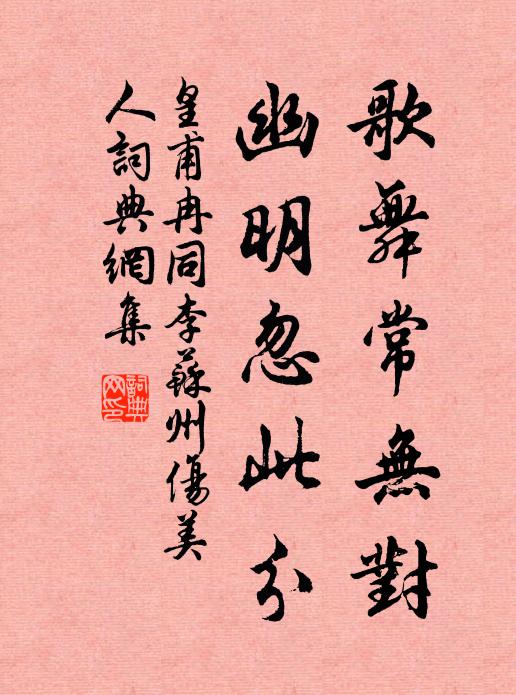 歌舞常無對
幽明忽此分
皇甫冉同李蘇州傷美
人詞典網集
詞典網印